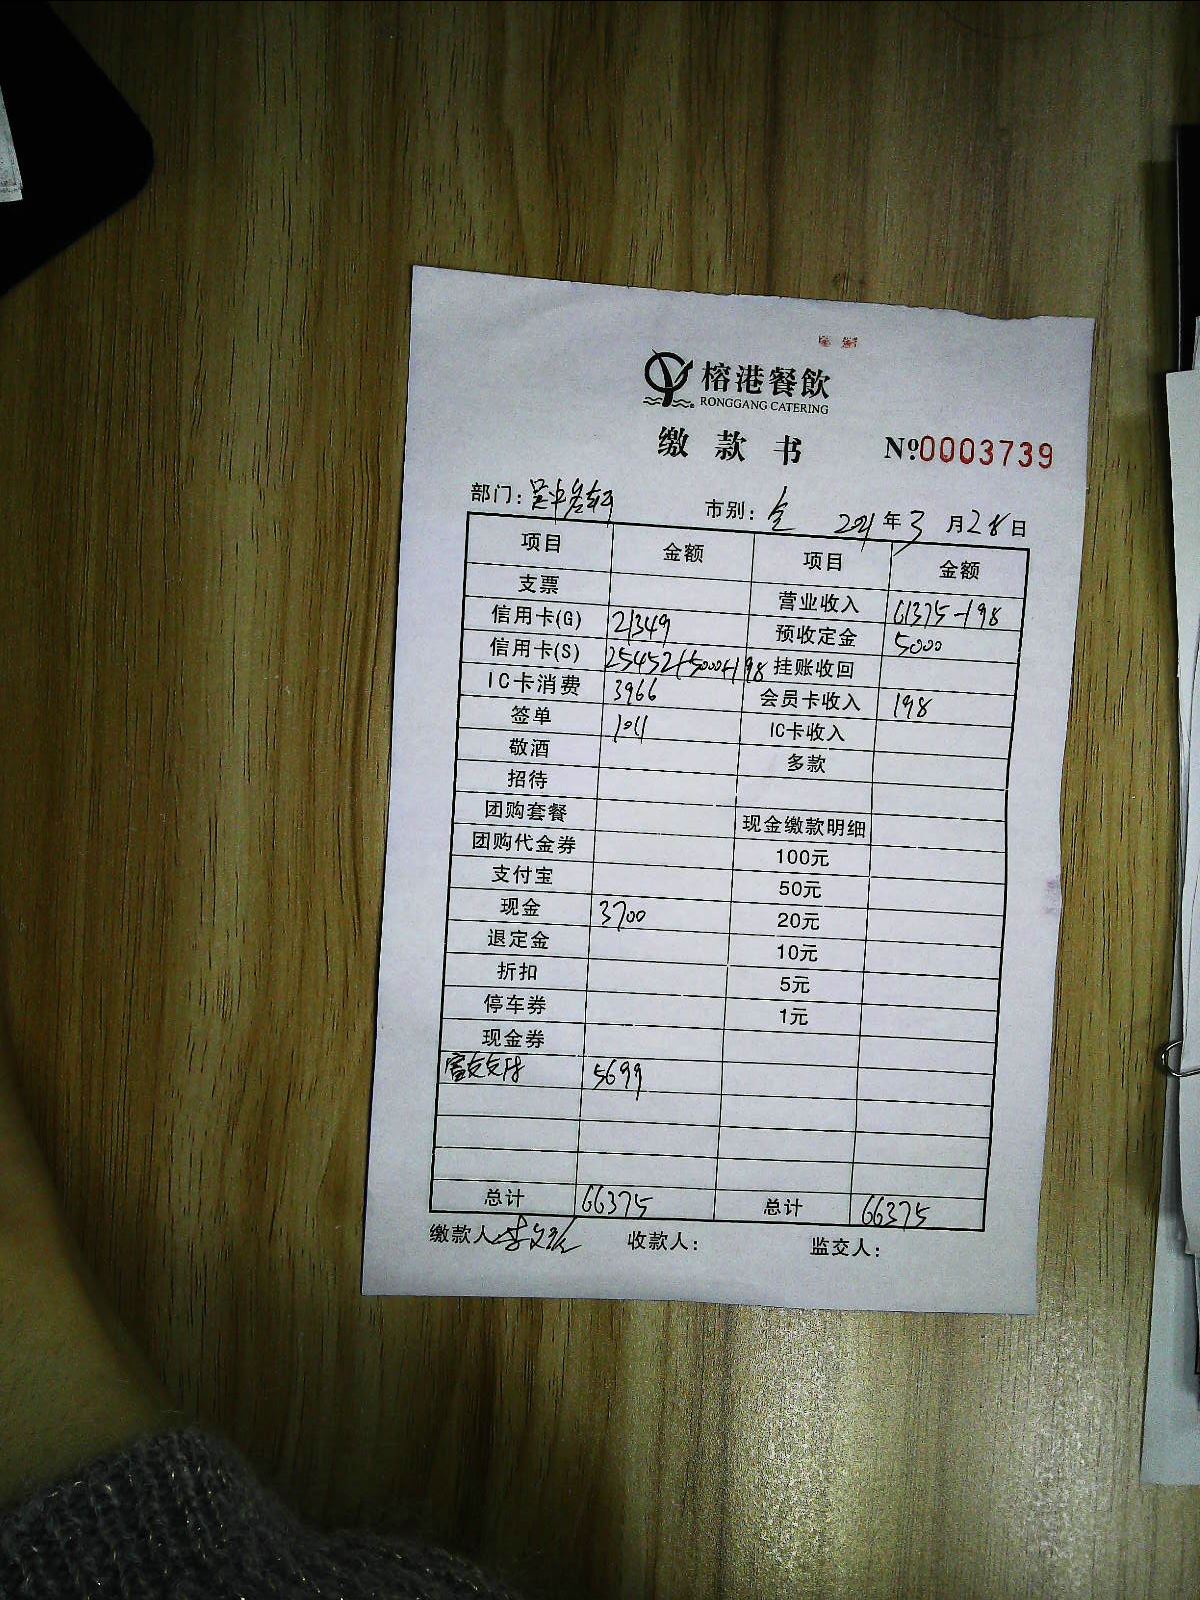 榕港餐飲
RONGGANG CATERING
缴款书 No0003739
部门: 市别: 全 2021年3月28日
项目 金额 项目 金额
支票 营业收入 61375-198
信用卡(G) 21349 预收定金 5000
信用卡(S) 25452+5000+198 挂账收回
IC卡消费 3966 会员卡收入 198
签单 1011 IC卡收入
敬酒 多款
招待
团购套餐 现金缴款明细
团购代金券 100元
支付宝 50元
现金 3700 20元
退定金 10元
折扣 5元
停车券 1元
现金券
5699
总计 66375 总计 66375
缴款人: 收款人: 监交人: